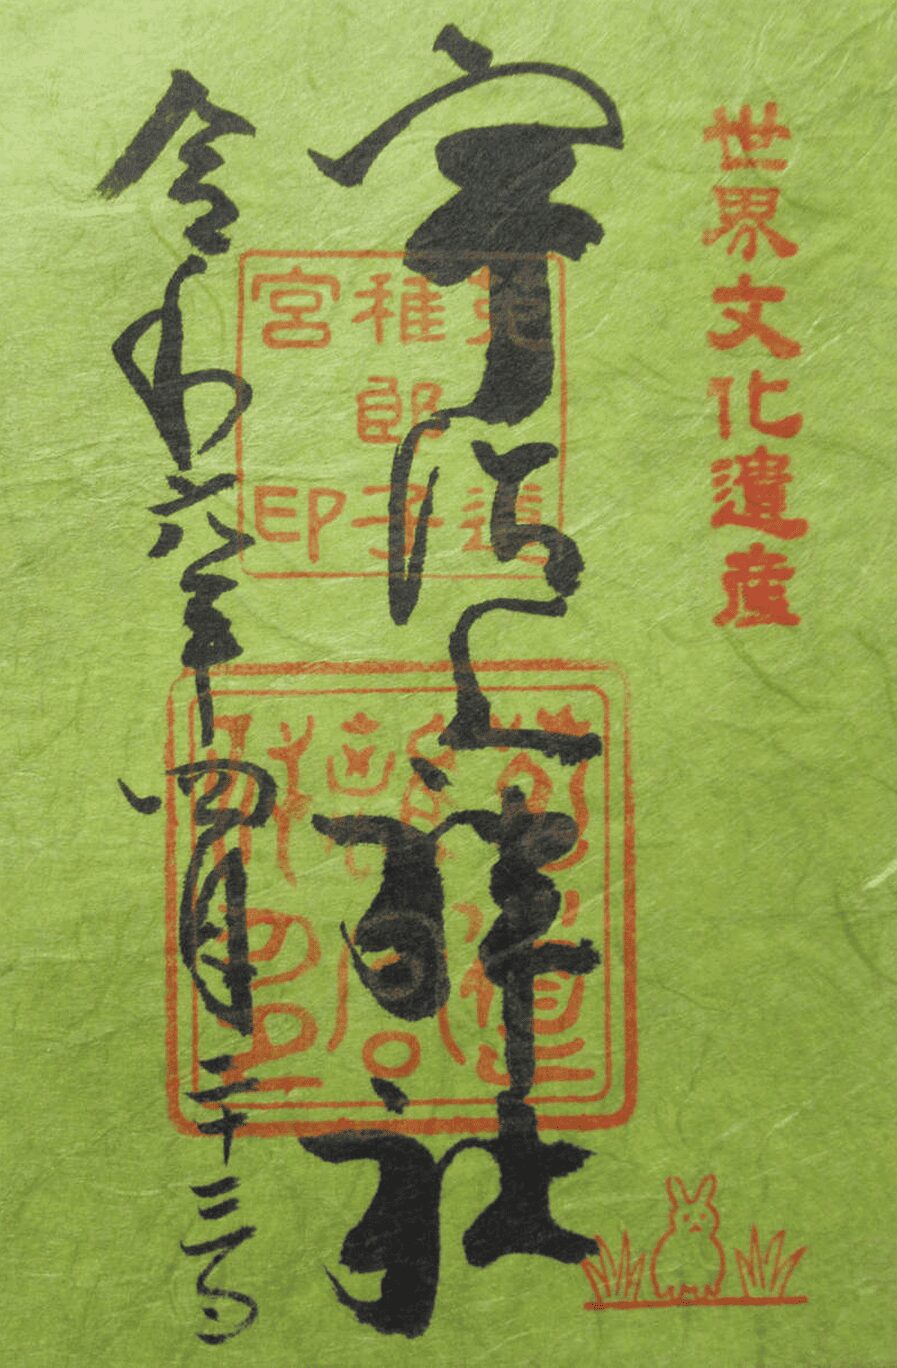 世界文化遺産
宇治上神社
菟道
稚郎子
宮印
令和六年四月二十三日